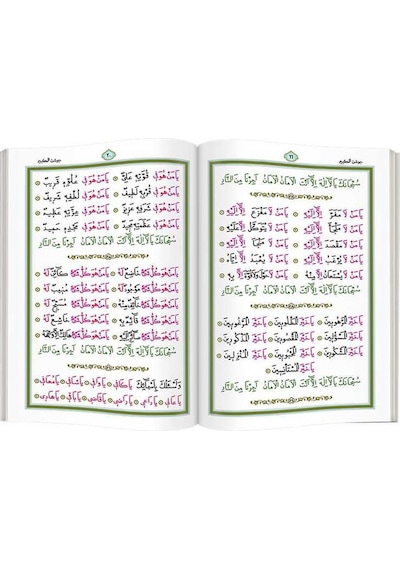 جوشن الكبير ٢١
سُبْحَانَكَ يَا لَا اِلٰهَ اِلَّا اَنْتَ الْاَمَانُ الْاَمَانُ اَجِرْنَا مِنَ النَّارِ
يَا مَنْ لَا مَفَرَّ اِلَّا اِلَيْهِ يَا مَنْ لَا مَفْزَعَ اِلَّا اِلَيْهِ
يَا مَنْ لَا اِلَّا اِلَيْهِ
يَا مَنْ لَا اِلَّا اِلَيْهِ يَا مَنْ لَا مَقْصَدَ اِلَّا اِلَيْهِ
يَا مَنْ لَا يُرْغَبُ اِلَّا اِلَيْهِ يَا مَنْ لَا يُعْبَدُ اِلَّا اِيَّاهُ
يَا مَنْ لَا يُسْتَعَانُ اِلَّا مِنْهُ يَا مَنْ لَا حَوْلَ وَلَا قُوَّةَ اِلَّا بِهِ
سُبْحَانَكَ يَا لَا اِلٰهَ اِلَّا اَنْتَ الْاَمَانُ الْاَمَانُ اَجِرْنَا مِنَ النَّارِ
يَا خَيْرَ الْمَرْهُوبِينَ يَا خَيْرَ الْمَطْلُوبِينَ يَا خَيْرَ الْمَرْغُوبِينَ
يَا خَيْرَ الْمَسْئُولِينَ يَا خَيْرَ الْمَقْصُودِينَ يَا خَيْرَ الْمَذْكُورِينَ
يَا خَيْرَ الْمَشْكُورِينَ يَا خَيْرَ الْمَحْبُوبِينَ يَا خَيْرَ الْمُنْزِلِينَ
يَا خَيْرَ الْمُسْتَأْنِسِينَ
سُبْحَانَكَ يَا لَا اِلٰهَ اِلَّا اَنْتَ الْاَمَانُ الْاَمَانُ اَجِرْنَا مِنَ النَّارِ
٢٠ جوشن الكبير
يَا مَنْ هُوَ فِي قُوَّتِهِ عَلِيٌّ يَا مَنْ هُوَ فِي عُلُوِّهِ قَرِيبٌ
يَا مَنْ هُوَ فِي قُرْبِهِ لَطِيفٌ يَا مَنْ هُوَ فِي لُطْفِهِ شَرِيفٌ
يَا مَنْ هُوَ فِي شَرَفِهِ عَزِيزٌ يَا مَنْ هُوَ فِي عِزِّهِ عَظِيمٌ
يَا مَنْ هُوَ فِي عَظَمَتِهِ مَجِيدٌ يَا مَنْ هُوَ فِي مَجْدِهِ حَمِيدٌ
سُبْحَانَكَ يَا لَا اِلٰهَ اِلَّا اَنْتَ الْاَمَانُ الْاَمَانُ اَجِرْنَا مِنَ النَّارِ
يَا مَنْ هُوَ كُلُّ شَيْءٍ خَاضِعٌ لَهُ يَا مَنْ هُوَ كُلُّ شَيْءٍ كَائِنٌ لَهُ
يَا مَنْ هُوَ كُلُّ شَيْءٍ يَا مَنْ هُوَ كُلُّ شَيْءٍ مُنِيبٌ لَهُ
يَا مَنْ هُوَ كُلُّ شَيْءٍ يَا مَنْ هُوَ كُلُّ شَيْءٍ مُسَبِّحٌ لَهُ
يَا مَنْ هُوَ كُلُّ شَيْءٍ قَائِمٌ بِهِ يَا مَنْ هُوَ كُلُّ شَيْءٍ خَاشِعٌ لَهُ
يَا مَنْ هُوَ كُلُّ شَيْءٍ يَا مَنْ هُوَ كُلُّ شَيْءٍ هَالِكٌ اِلَّا وَجْهَهُ
سُبْحَانَكَ يَا لَا اِلٰهَ اِلَّا اَنْتَ الْاَمَانُ الْاَمَانُ اَجِرْنَا مِنَ النَّارِ
وَاَسْئَلُكَ بِاَسْمَائِكَ يَا كَافِي يَا وَافِي يَا شَافِي يَا مُعَافِي
يَا عَالِي يَا دَاعِي يَا رَاضِي يَا قَاضِي يَا بَاقِي يَا هَادِي